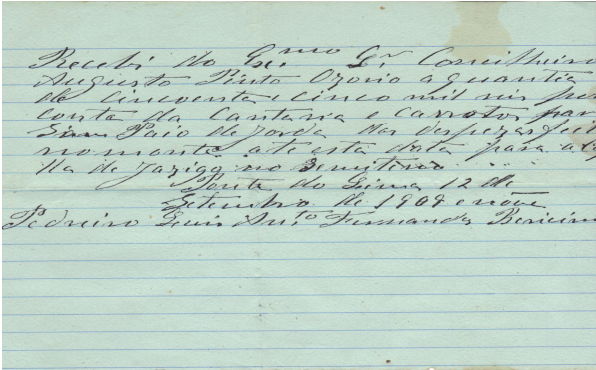 Recebi do Ex.mo Sr. Conselheiro
Augusto Pinto Ozorio a quantia
de cincoenta e cinco mil reis por
conta da Cantaria e carrotos para
das despezas feitas
no monte até esta data para a
de Jazigo no Semiterio
Ponte do Lima 12 de
Setembro de 1909 e nove
Pedreiro Luis Ant.to Fernandes